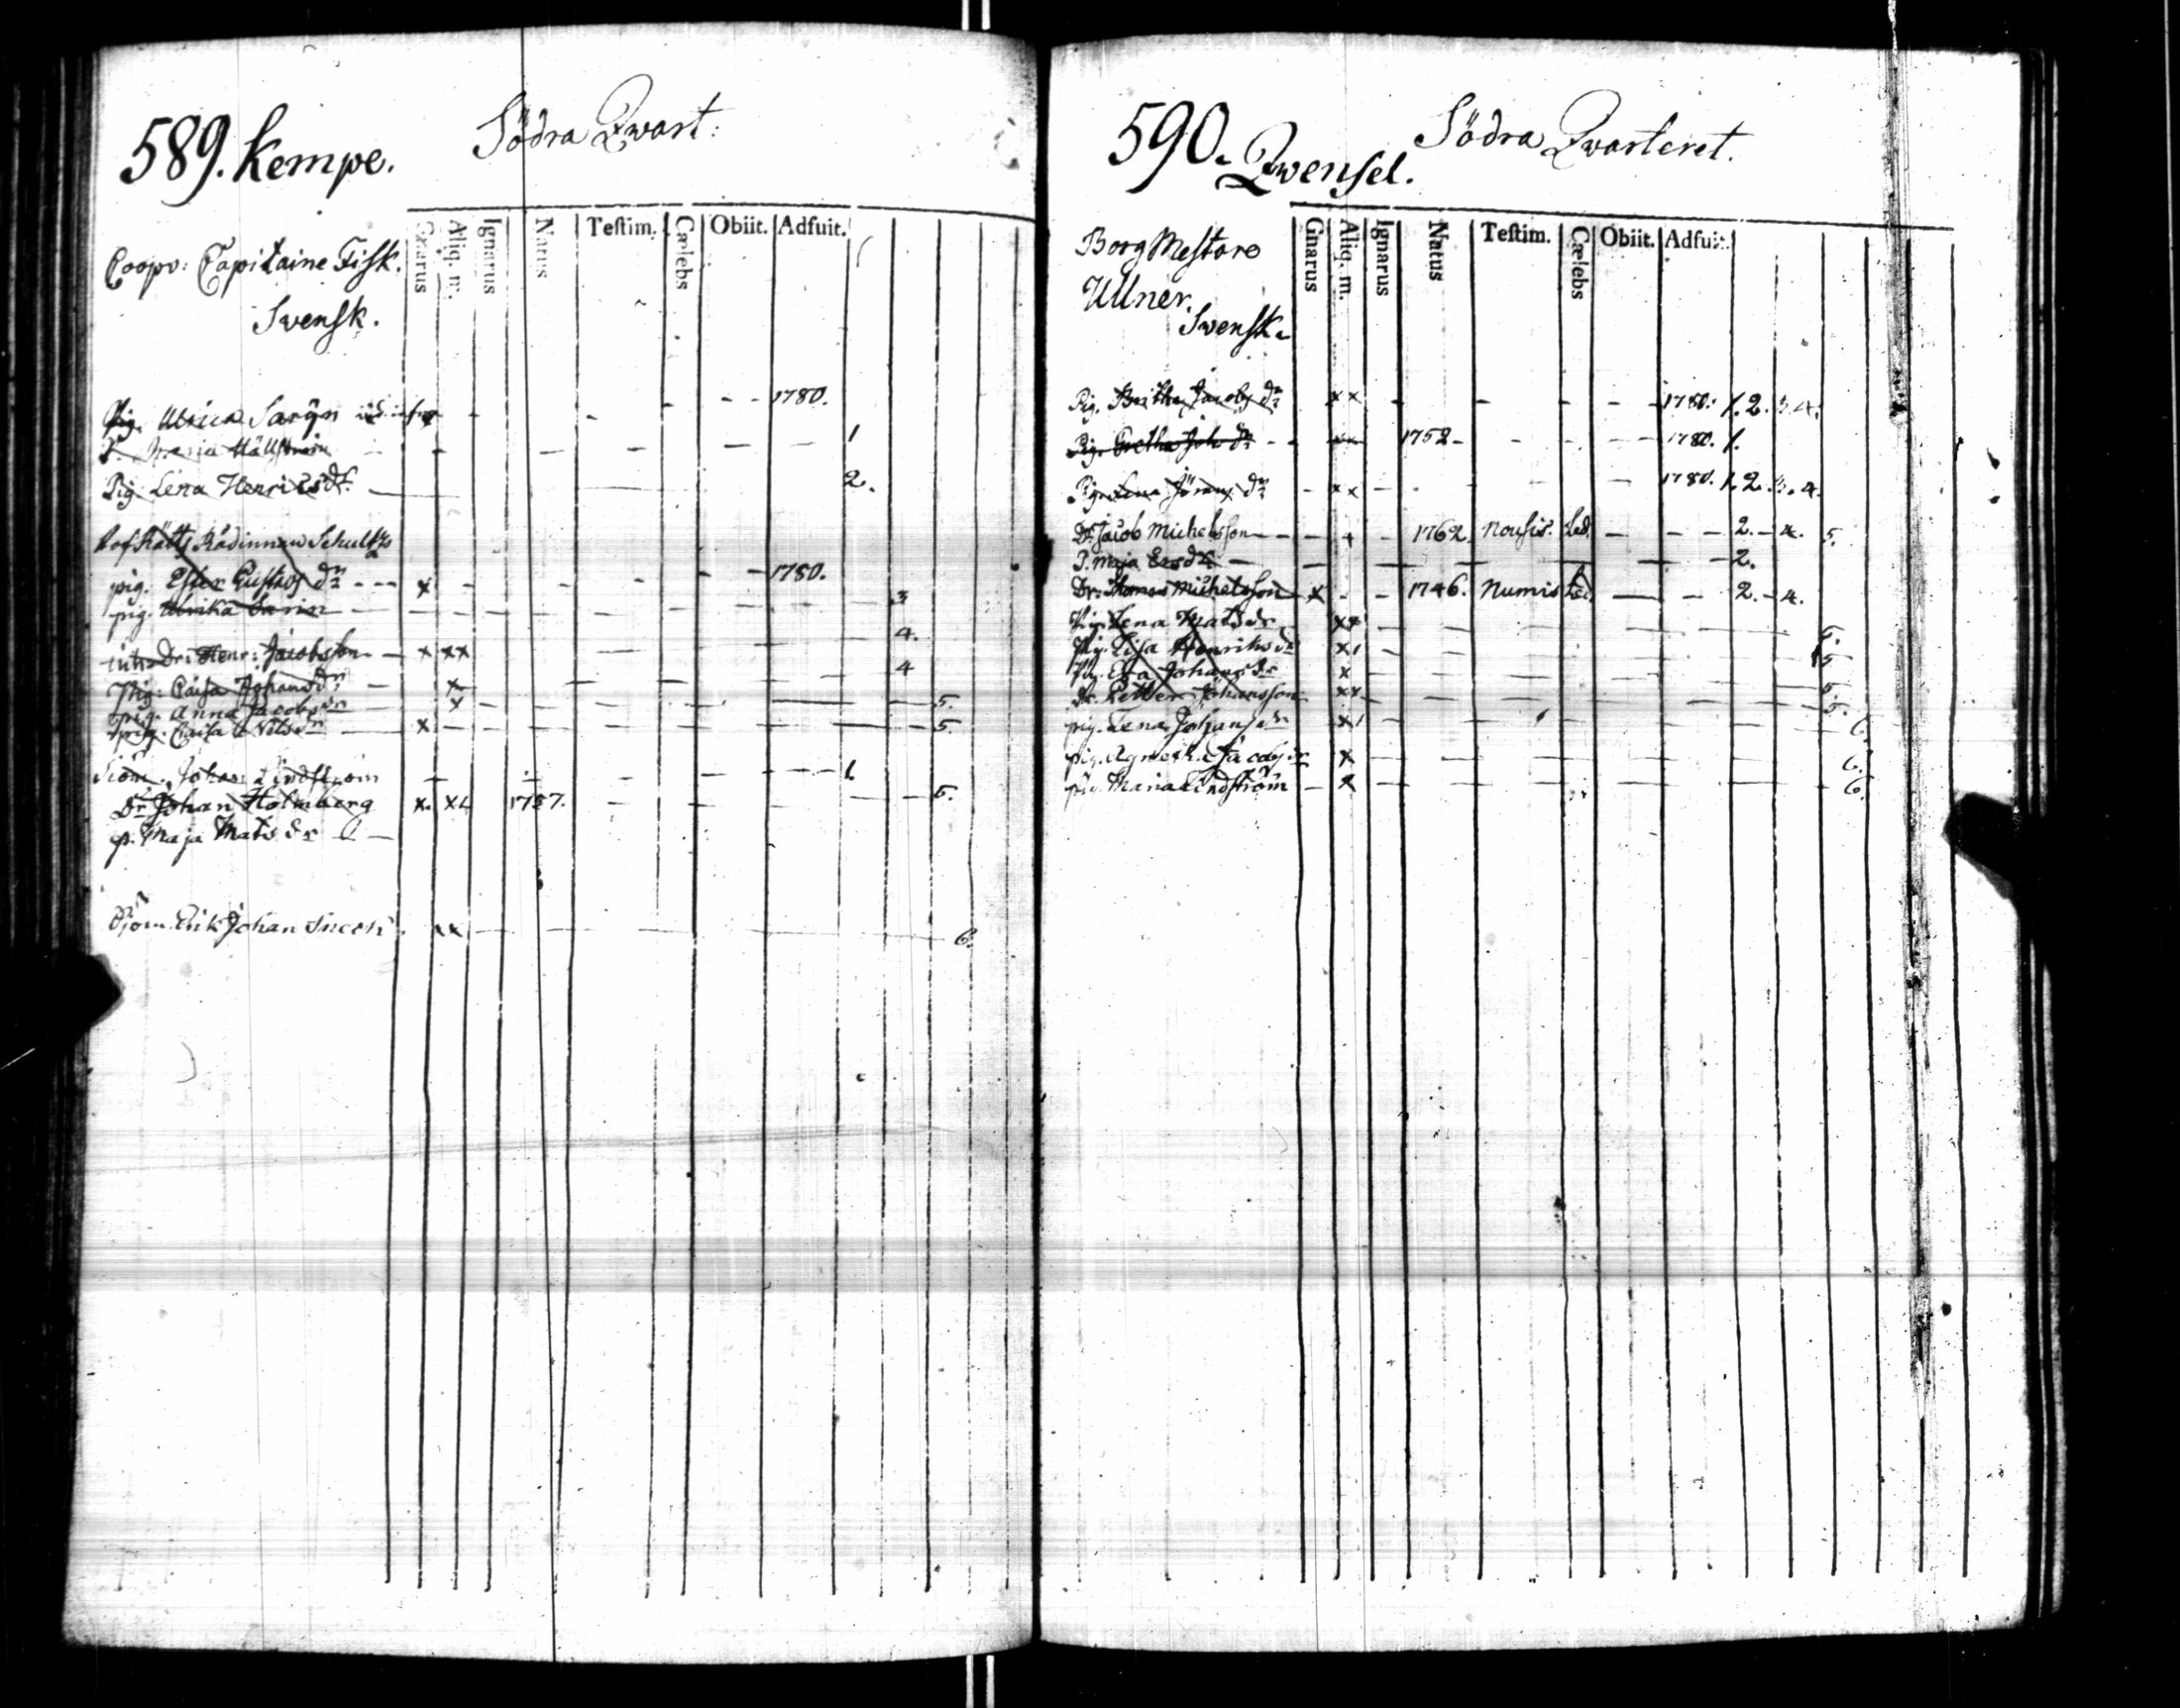 589. Kempe.
Södra Qwart:
Coopv: Capitaine Fisk.
Svensk.
Gnarus Aliq. m. Ignarus Natus Testim. Cælebs Obiit. Adfuit.
Pig. Ulrica Sarijn - - - - 1780.
Maria Hällström - - - - 1
Pig. Lena Henricsdr. 2.
Hof Rätts Rådinnan Schultz
pig. Ester Gustafs dr - - - x - - - - 1780.
pig. Ulrika Sarin - - - - 3
Dr: Henr: Jacobsson - x xx - - - - 4.
Pig: Caisa Johansdr - x - - - - 4
pig. Anna Jacobsdr - x - - - - 5.
pig. Caisa Nilsdr - x - - - - 5.
Siöm. Johan Lindström - - - - 1.
Dr Johan Holmberg x. xx 1757. - - - 5.
p. Maja Matsdr 6 -
Sjöm. Erik Johan - xx - - - 6.
590. Qwensel.
Södra Qwarteret.
BorgMestare
Ullner.
Swensk.
Gnarus Aliq. m. Ignarus Natus Testim. Cælebs Obiit. Adfuit.
Pig. Britha Jacobs dr xx - - - - 1780. 1. 2. 3. 4.
Pig. Gretha Joh dr - - xx 1752 - - - - 1780. 1.
Pig. Lena Jörans dr - xx - - - 1780. 1. 2. 3. 4.
Dr. Jacob Michelsson - - - - 1762. Nousis. Led. - - - 2. - 4. 5.
P. Maja Ersdr - - - - 2.
Dr. Thomas Michelsson x - - 1746. Numis Led. - - 2. - 4.
Pig. Lena Matsdr xx - - - - 5.
Pig. Lisa Henriksdr x - - - - 5
Pig. Eva Johansdr x - - - - 5.
Dr. Petter Johansson xx - - - - 5.
pig. Lena Johansdr x - - - - 6.
pig. Agnes Jacobsdr x - - - - 6.
pig. Maria Lindström - x - - - - 6.